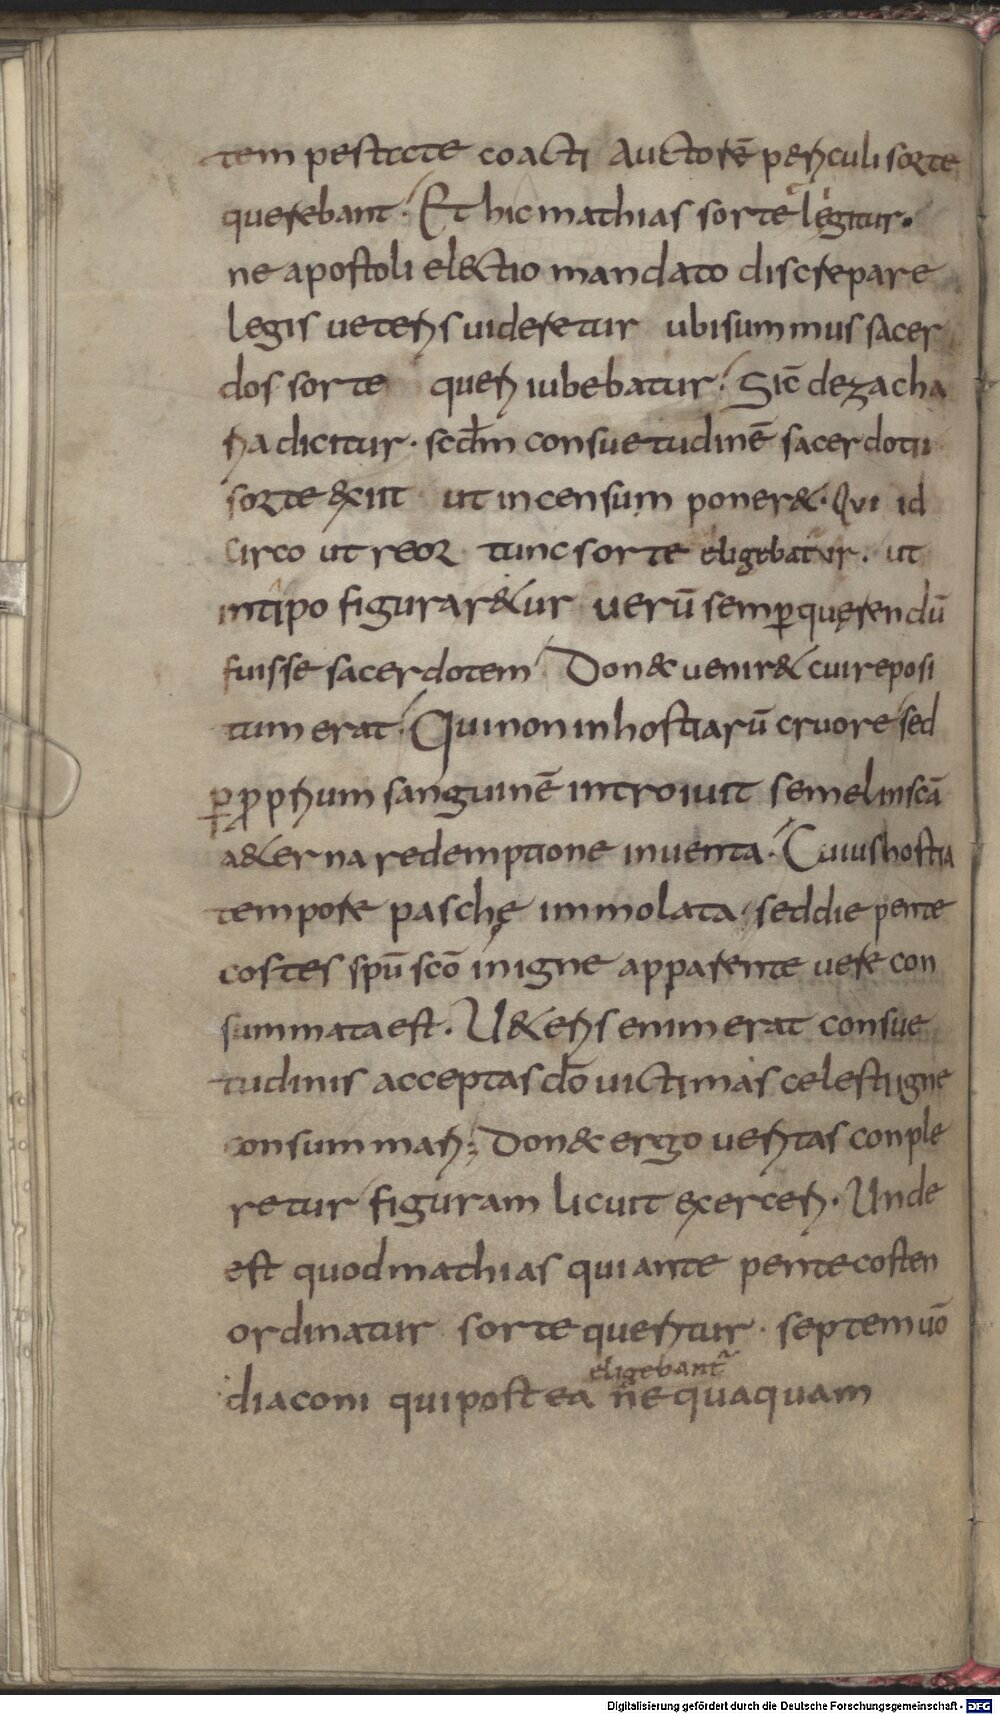 tempestate coacti auctorē periculi sorte
querebant. Et hic mathias sorte legitur.
ne apostoli el&ctio mandato discrepare
legis ueteris uideretur ubi summus sacer
dos sorte queri iubebatur. Sic̄ de zacha
ria dicitur. scdm̄ consuetudinē sacerdotii
sorte exiit ut incensum poner&. Qui id
circo ut reor tunc sorte eligebatur. ut
in tipo figurar&ur uerū semꝑ querendū
fuisse sacerdotem Don&c uenir& cui reposi
tum erat. Qui non in hostiarū cruore sed
ꝑ ꝓprium sanguinē introiuit semel in scā
a&erna redemptione inuenta. Cuius hostia
tempore paschę immolata. sed die pente
costes spū scō in igne apparente uere con
summata est. U&eris enim erat consue
tudinis acceptas dō uictimas celesti igne
consummari; Don&c ergo ueritas conple
retur figuram licuit exerceri. Unde
est quod mathias qui ante pentecosten
ordinatur sorte queritur. septem uō
eligebantr̄
diaconi qui postea nequaquam
Digitalisierung gefördert durch die Deutsche Forschungsgemeinschaft - DFG